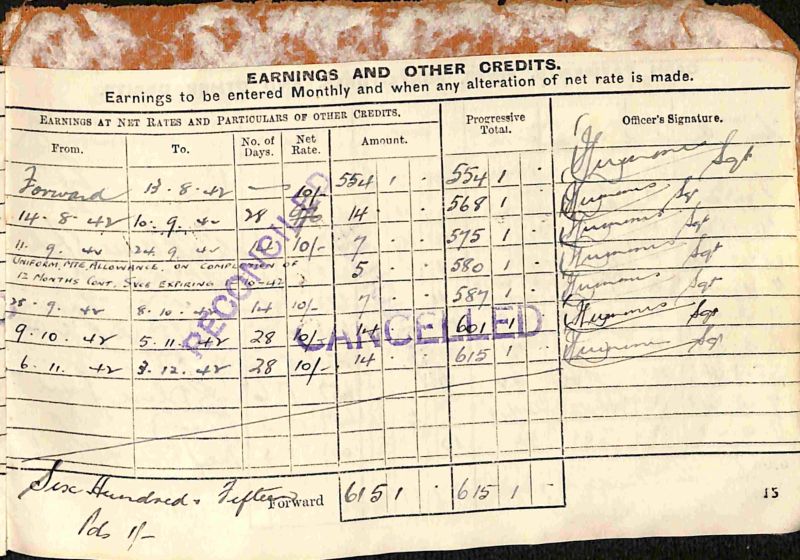 EARNINGS AND OTHER CREDITS.
Earnings to be entered Monthly and when any alteration of net rate is made.
EARNINGS AT NET RATES AND PARTICULARS OF OTHER CREDITS.
Progressive Total.
Officer's Signature.
From. To. No. of Days. Net Rate. Amount.
Forward 13 · 8 · 42 — 10/- 554 1 · 554 1 · Sgt
14 · 8 · 42 10 · 9 · 42 28 14 · · 568 1 · Sgt
11 · 9 · 42 24 · 9 · 42 10/- 7 · · 575 1 · Sgt
UNIFORM. MTE. ALLOWANCE. ON COMPLETION OF
12 MONTHS CONT. SVCE EXPIRING 5 · · 580 1 · Sgt
· 9 · 42 8 · 10 · 42 14 10/- 7 · · 587 1 · Sgt
9 · 10 · 42 5 · 11 · 42 28 10/- 14 · · 601 1 · Sgt
6 · 11 · 42 3 · 12 · 42 28 10/- 14 · · 615 1 · Sgt
RECONCILED
CANCELLED
Six Hundred & Fifteen Forward 615 1 · 615 1 ·
Pds 1/-
15